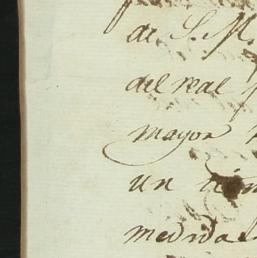 de S. M.
del real
mayor
un
medida